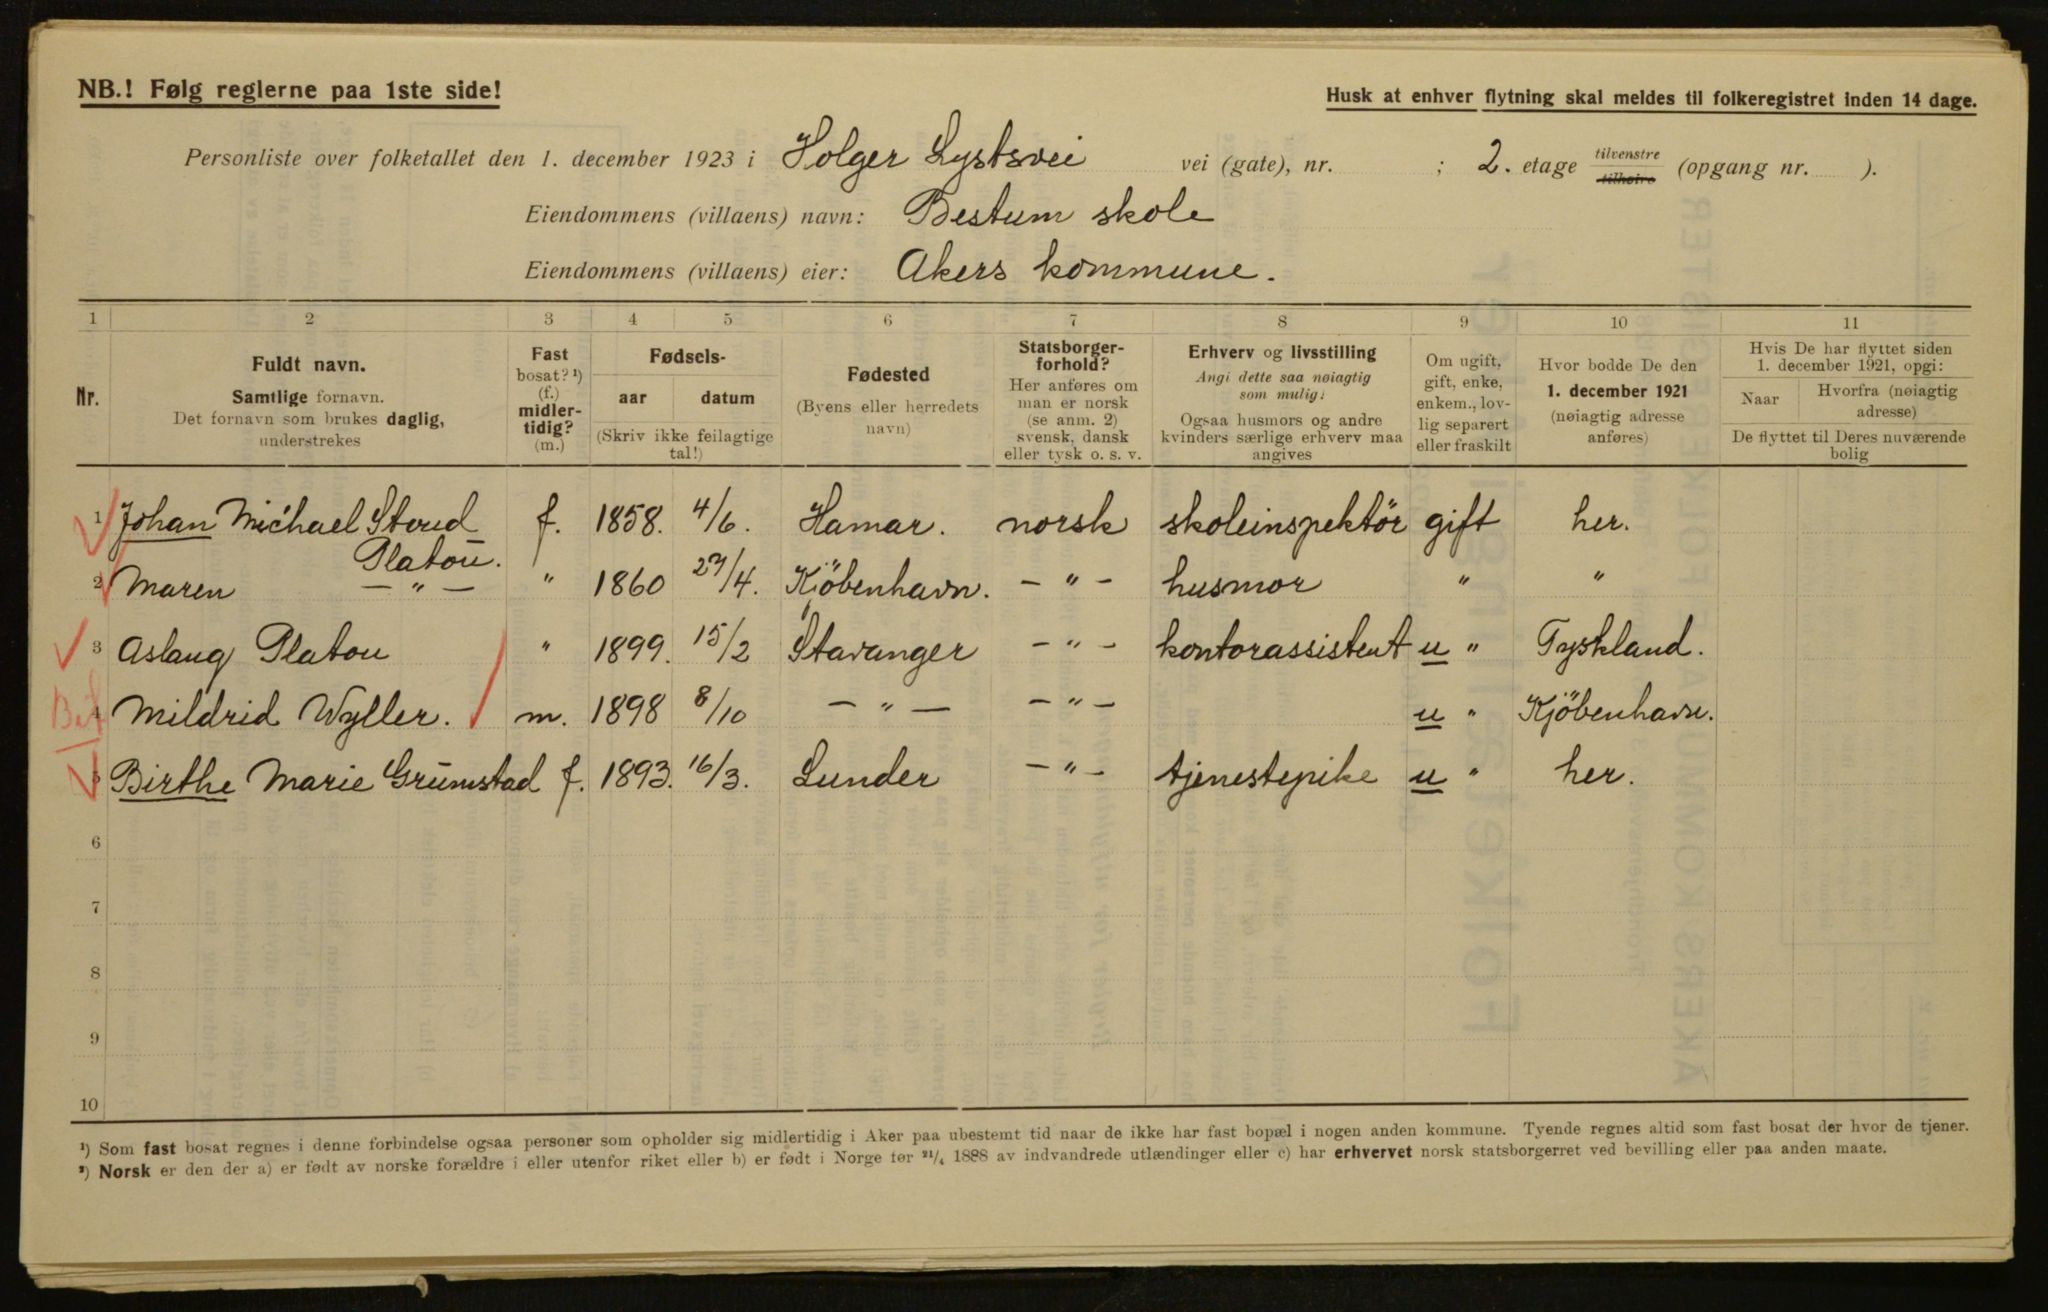 NB.! Følg reglerne paa 1ste side!
Husk at enhver flytning skal meldes til folkeregistret inden 14 dage.
Personliste over folketallet den 1. december 1923 i Holger Lystsvei vei (gate), nr. ; 2. etage tilvenstre tilhøire (opgang nr. ).
Eiendommens (villaens) navn: Bestum skole
Eiendommens (villaens) eier: Akers kommune.
1 2 3 4 5 6 7 8 9 10 11
Nr.
Fuldt navn.
Samtlige fornavn.
Det fornavn som brukes daglig,
understrekes
Fast
bosat? ¹)
(f.)
midler-
tidig?
(m.)
Fødsels-
aar datum
(Skriv ikke feilagtige
tal!)
Fødested
(Byens eller herredets
navn)
Statsborger-
forhold?
Her anføres om
man er norsk
(se anm. 2)
svensk, dansk
eller tysk o. s. v.
Erhverv og livsstilling
Angi dette saa nøiagtig
som mulig!
Ogsaa husmors og andre
kvinders særlige erhverv maa
angives
Om ugift,
gift, enke,
enkem., lov-
lig separert
eller fraskilt
Hvor bodde De den
1. december 1921
(nøiagtig adresse
anføres)
Hvis De har flyttet siden
1. december 1921, opgi:
Naar
Hvorfra (nøiagtig
adresse)
De flyttet til Deres nuværende
bolig
1 Johan Michael Stoud f. 1858. 4/6. Hamar. norsk skoleinspektör gift her.
Platou.
2 Maren — " — " 1860 27/4. Kjöbenhavn. — " — husmor " "
3 Aslaug Platou " 1899. 15/2 Stavanger — " — kontorassistent u " Tyskland.
4 Mildrid Wyller. m. 1898 8/10 — " — — " — u " Kjöbenhavn.
5 Birthe Marie Grumstad f. 1893. 16/3. Lunder — " — tjenestepike u " her.
6
7
8
9
10
¹) Som fast bosat regnes i denne forbindelse ogsaa personer som opholder sig midlertidig i Aker paa ubestemt tid naar de ikke har fast bopæl i nogen anden kommune. Tyende regnes altid som fast bosat der hvor de tjener.
²) Norsk er den der a) er født av norske forældre i eller utenfor riket eller b) er født i Norge før 21/4 1888 av indvandrede utlændinger eller c) har erhvervet norsk statsborgerret ved bevilling eller paa anden maate.